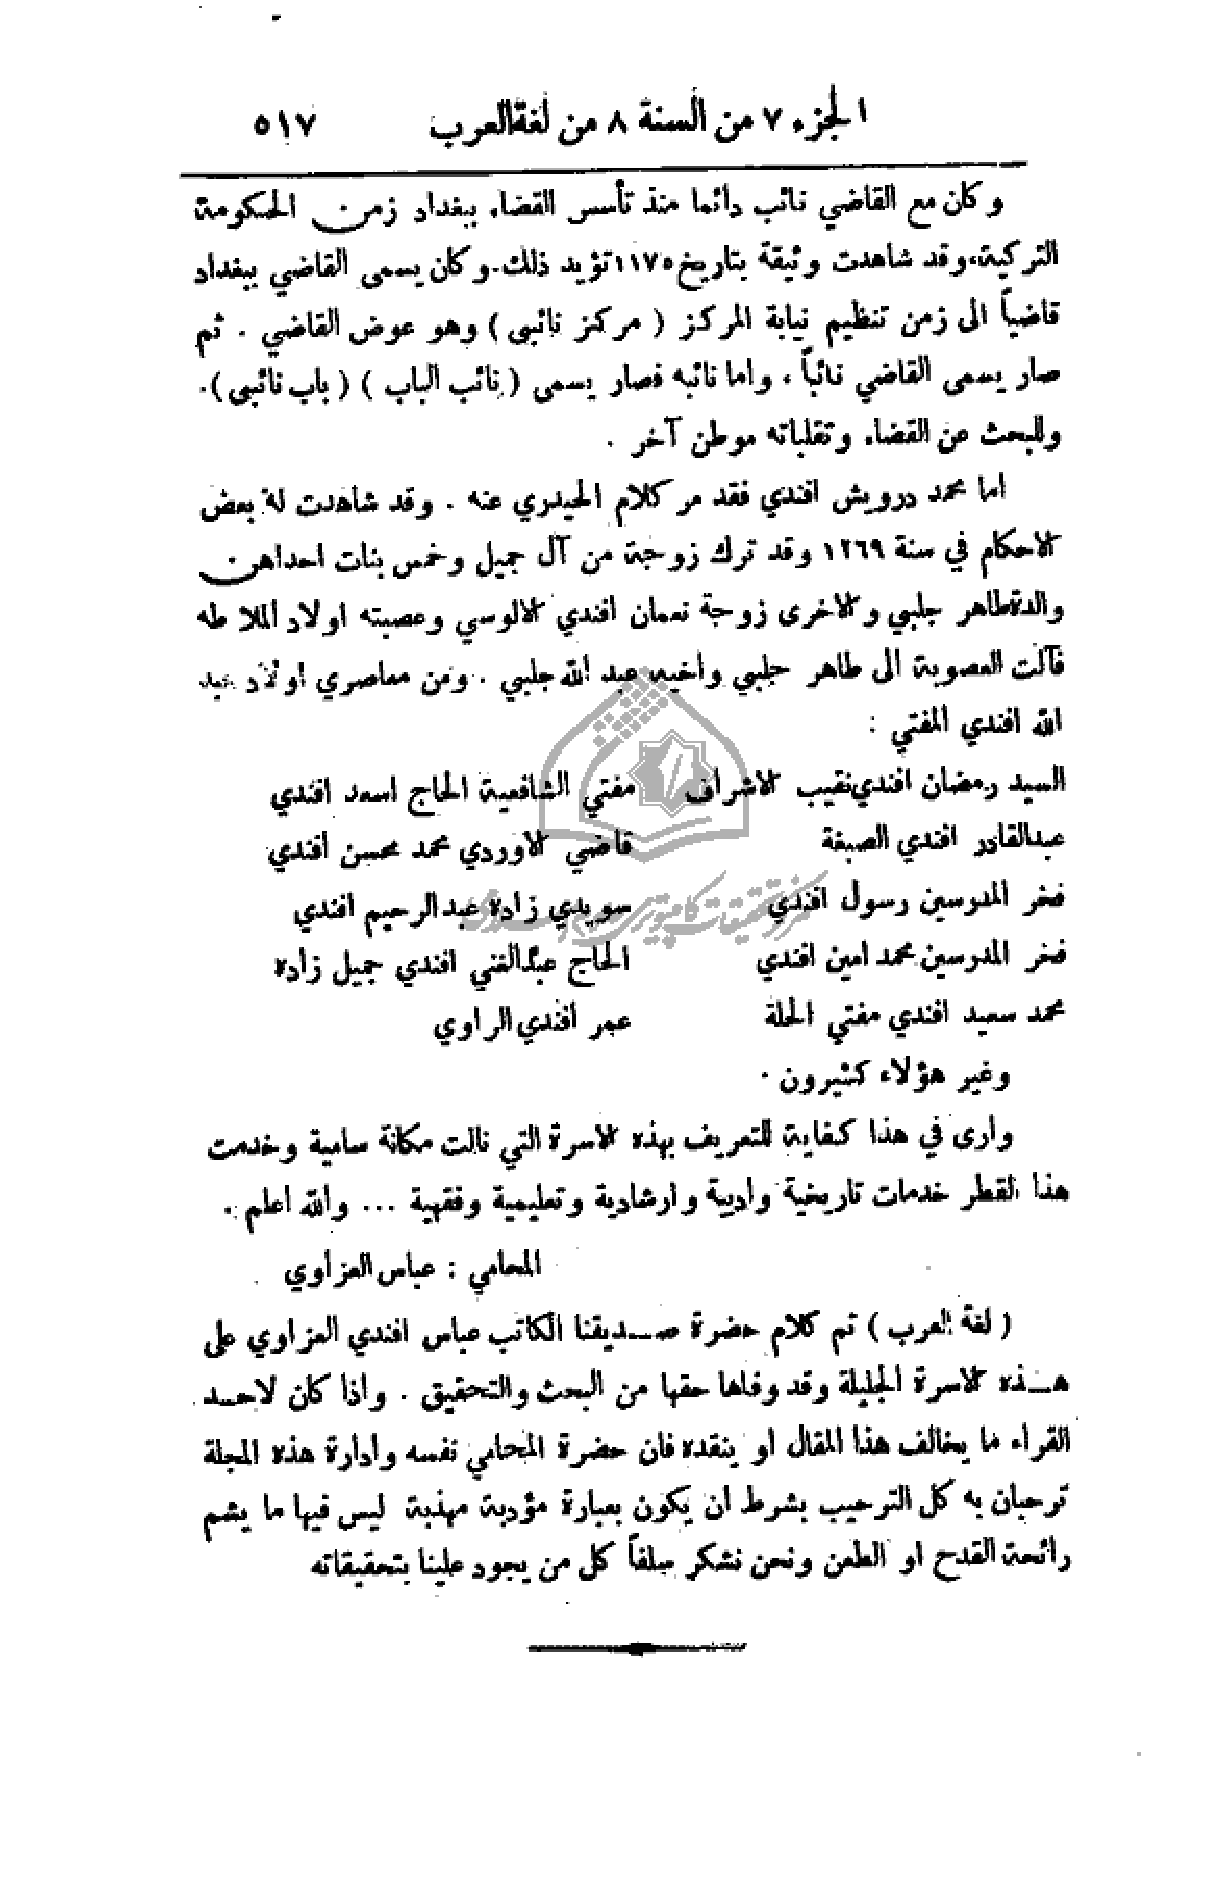 الجزء ٧ من السنة ٨ من لغة العرب ٥١٧
وكان مع القاضي نائب دائما منذ تأسس القضاء ببغداد زمن الحكومة
التركية، وقد شاهدت وثيقة بتاريخ ١١٧٥ تؤيد ذلك. وكان يسمى القاضي ببغداد
قاضياً الى زمن تنظيم نيابة المركز ( مركز نائبى ) وهو عوض القاضي . ثم
صار يسمى القاضي نائباً ، واما نائبه فصار يسمى ( نائب الباب ) ( باب نائبى ).
وللبحث عن القضاء وتقلباته موطن آخر .
اما محمد درويش افندي فقد مر كلام الحيدري عنه . وقد شاهدت له بعض
الاحكام في سنة ١٢٦٩ وقد ترك زوجة من آل جميل وخمس بنات احداهن
والدة طاهر جلبي والاخرى زوجة نعمان افندي الالوسي وعصبته اولاد الملا طه
فآلت العصوبة الى طاهر جلبي واخيه عبد الله جلبي . ومن معاصري اولاد عبد
الله افندي المفتي :
السيد رمضان افندي نقيب الاشراف مفتي الشافعية الحاج اسعد افندي
عبدالقادر افندي الصبغة قاضي الاوردي محمد محسن افندي
فخر المدرسين رسول افندي سويدي زاده عبد الرحيم افندي
فخر المدرسين محمد امين افندي الحاج عبدالغني افندي جميل زاده
محمد سعيد افندي مفتي الحلة عمر افندي الراوي
وغير هؤلاء كثيرون .
وارى في هذا كفاية للتعريف بهذه الاسرة التي نالت مكانة سامية وخدمت
هذا القطر خدمات تاريخية وادبية وارشادية وتعليمية وفقهية ... والله اعلم .
المحامي : عباس العزاوي
( لغة العرب ) تم كلام حضرة صديقنا الكاتب عباس افندي العزاوي على
هذه الاسرة الجليلة وقد وفاها حقها من البحث والتحقيق . واذا كان لاحد
القراء ما يخالف هذا المقال او ينقده فان حضرة المحامي نفسه وادارة هذه المجلة
ترحبان به كل الترحيب بشرط ان يكون بعبارة مؤدبة مهذبة ليس فيها ما يشم
رائحة القدح او الطعن ونحن نشكر سلفاً كل من يجود علينا بتحقيقاته